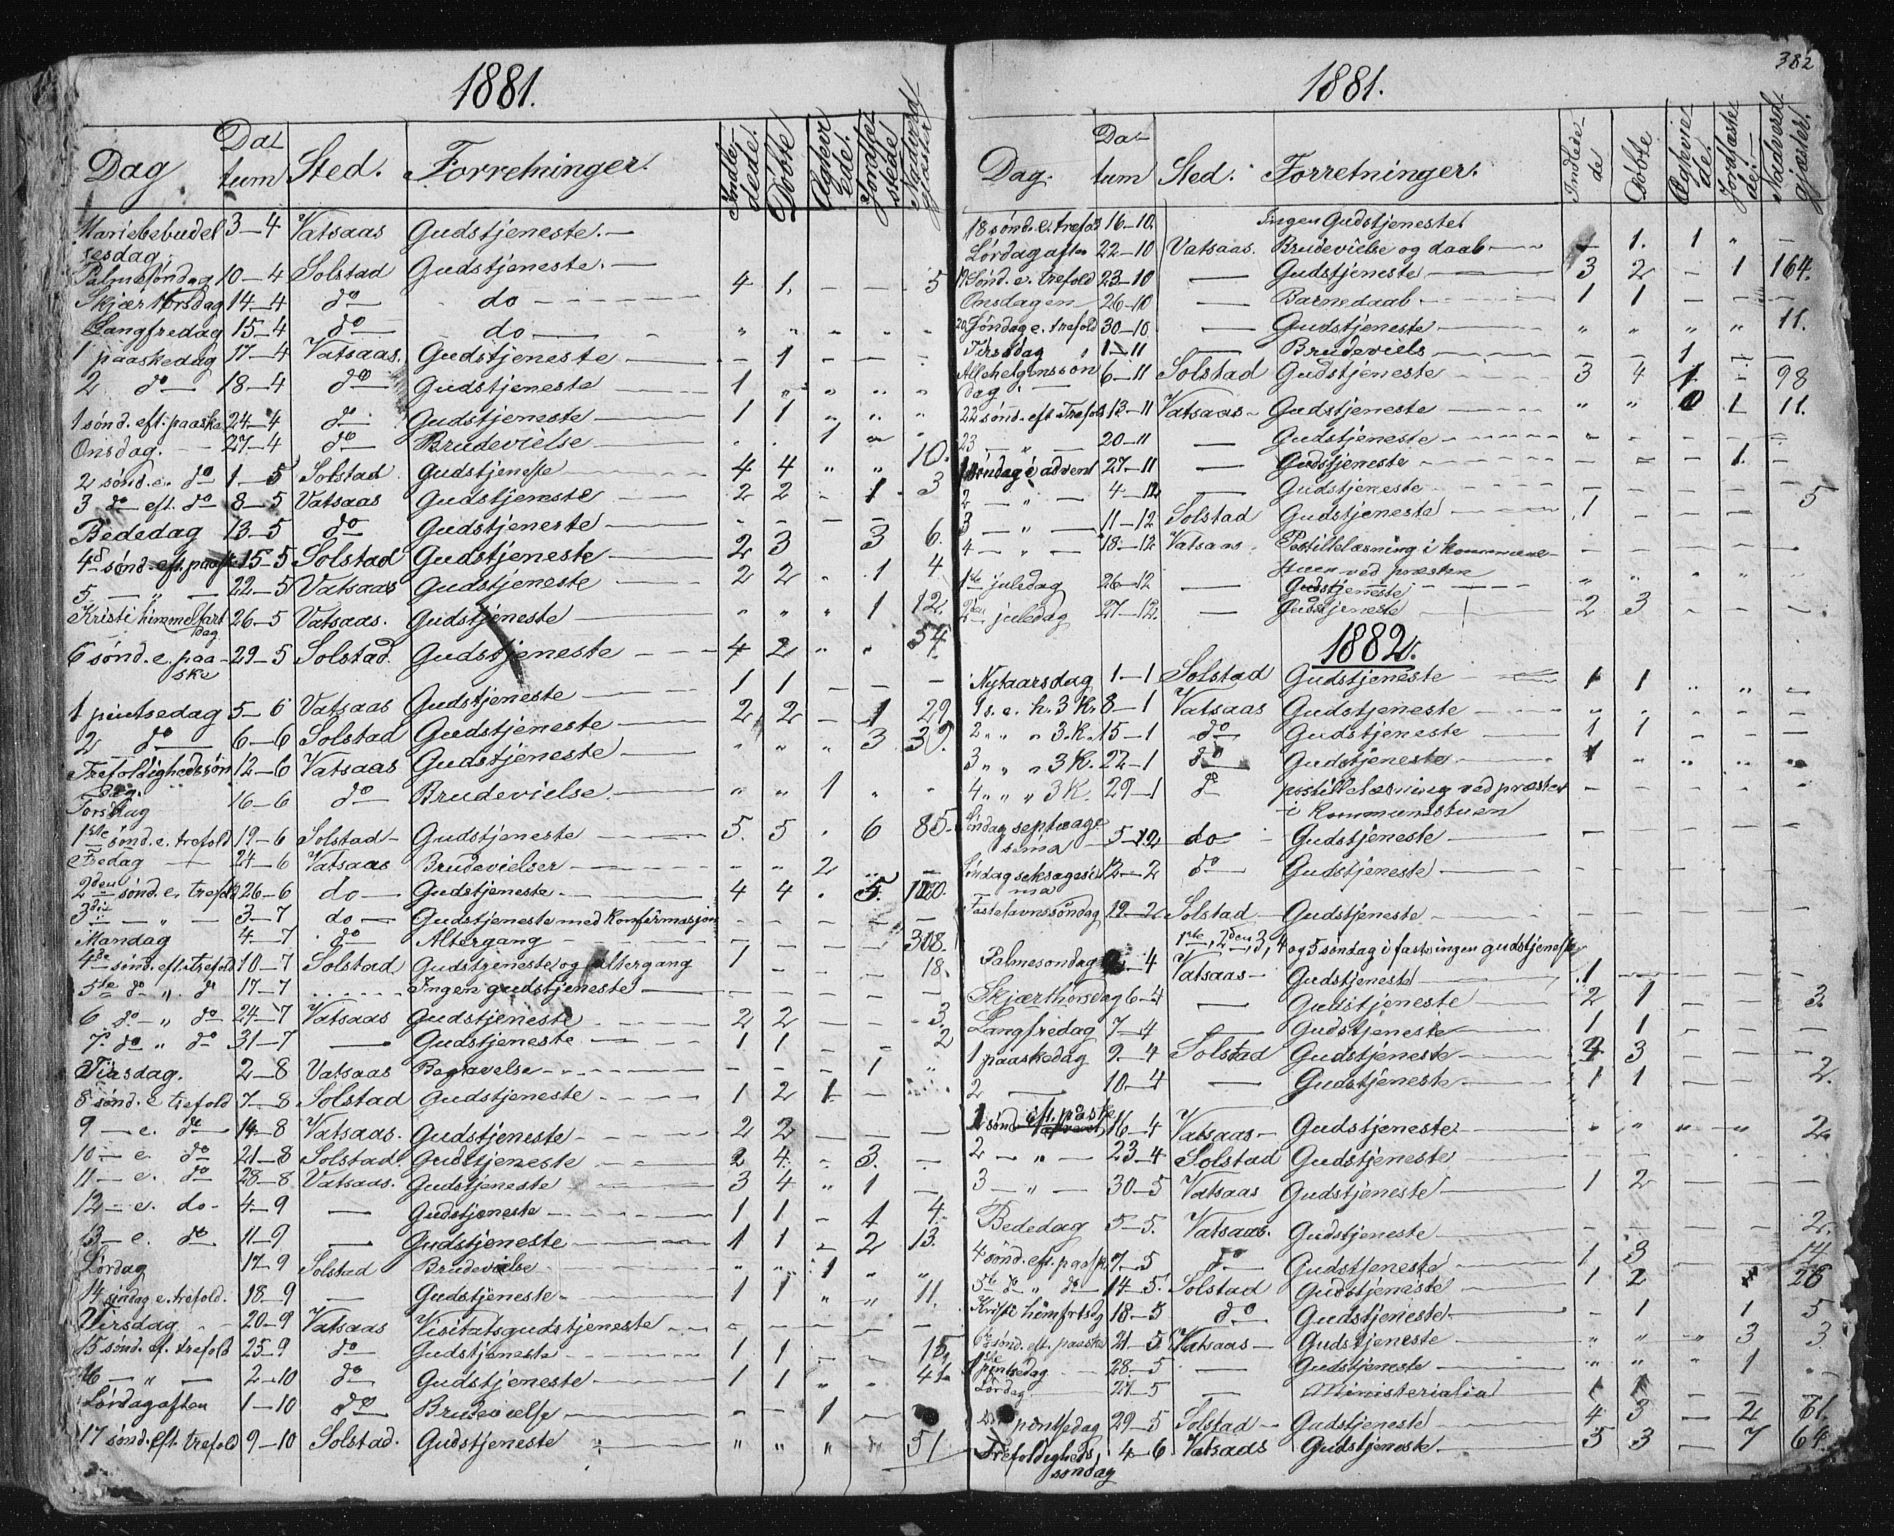 1881.
Dag Datum Sted. Forretninger. Indledede. Døbte Ægteviede. Jordfæstede Nadverdgjæster
Mariebebudelsesdag; 3-4 Vatsaas Gudstjeneste. -
Palmesøndag 10-4 Solstad Gudstjeneste. - 4 1. - - 5
Skjærthorsdag 14-4 do do
Langfredag 15-4 do do " " - - -
1 paaskedag 17-4 Vatsaas. Gudstjeneste - 1 - - -
2 do 18-4 do Gudstjeneste 1 " " " "
1 sønd. eft. paaske 24-4 do Gudstjeneste 1 1 " " "
Onsdag. 27-4 do Brudevielse . . 1 " .
2 sønd. e. do 1-5 Solstad Gudstjeneste 4 4 " " 10.
3 do eft. do 8-5 Vatsaas Gudstjeneste 2 2 - 1 3
Bededag 13-5 do Gudstjeneste - - - - -
4de sønd. eft. paaske 15-5 Solstad Gudstjeneste 2 3 3 6.
5 - " - 22-5 Vatsaas Gudstjeneste 2 2 . 1 4
Kristi himmelfartdag 26-5 Vatsaas. Gudstjeneste " " " 1 12.
6 sønd. e. paaske 29-5 Solstad. Gudstjeneste 4 2 " " 54.
1 pintsedag 5-6 Vatsaas Gudstjeneste 1 1 - - -
2 do 6-6 Solstad Gudstjeneste 2 2 - 1 29
Trefoldighedssøndag. 12-6 Vatsaas Gudstjeneste " " " 3 32.
Torsdag 16-6 do Brudevielse. " " 1 " "
1ste sønd. e. trefold 19-6 Solstad Gudstjeneste 5. 5 . 6 85.
Fredag 24-6 Vatsaas Brudevielser - - 2 - -
2den sønd. e. trefold 26-6 do Gudstjeneste 4 4 . 5.
3die - " - 3-7 do Gudstjeneste med konfirmasjon - - - - -
Mandag 4-7 do Altergang - - - - 308.
4de sønd. eft. trefold 10-7 Solstad Gudstjeneste og altergang 1 - - - 18.
5te do " do 17-7 Ingen gudstjeneste
6 do " do 24-7 Vatsaas Gudstjeneste 2 2 - - 3
7. do " do 31-7 — Gudstjeneste 1 1 - - 2
Tirsdag. 2-8 Vatsaas Begravelse - - - 1 "
8 sønd. e trefold 7-8 Solstad Gudstjeneste 1 2 1 - -
9 - e. do 14-8 Vatsaas. Gudstjeneste 2 2 - - -
10 - e. do 21-8 Solstad. Gudstjeneste 2 4. - 3. -
11 - e. do 28-8. Vatsaas. Gudstjeneste 3 4 " 1 -
12 - e. do 4-9 — Gudstjeneste 1 1 - 1 4.
13 - e. do 11-9 — Gudstjeneste 1 1 - 2 13.
Lørdag 17-9 Solstad Brudevielse " " 1 " "
14 søndag e. trefold. 18-9 — Gudstjeneste 1 1 " " 11.
Tirsdag 20-9 Vatsaas Visitatsgudstjeneste - - - - -
15 sønd. ef. trefold 25-9 do Gudstjeneste 1 1 - - 15.
16 - " - 2-10 do Gudstjeneste 1 1 " " 41
Lørdagaften 1-10 do Brudevielse - - 1 -
17 sønd. eft. trefold 9-10 Solstad. Gudstjeneste " " " " 51
382
1881.
Dag. Datum Sted. Forretninger. Indledede Døbte Ægteviede. Jordfæstede Nadverdgjæster.
18 sønd. e. trefold 16-10. Ingen Gudstjeneste.
Lørdagaften 22-10 Vatsaas. Brudevielse og daab 1 1. 1 " -
19 Sønd. e. trefold 23-10 — Gudstjeneste 3 2 - 1 164.
Onsdagen 26-10 — Barnedaab 1 1 - - -
20 Søndag e. trefold 30-10 — Gudstjeneste " " " " 11.
Tirsdag 1-11 — Brudeviels - - 1 - -
Allehelgenssøndag. 6-11 Solstad Gudstjeneste 3 4 1 - 98
22 sønd. eft. Trefold 13-11 Vatsaas Gudstjeneste " " 0 1 11.
23 - " - 20-11 — Gudstjeneste - - - - -
1 søndag i advent 27-11 — Gudstjeneste - - - 1. -
2 - " - 4-12 — Gudstjeneste - - - - -
3 - " - 11-12 Solstad Gudstjeneste 1 - - - 5
4 - " - 18-12 Vatsaas Postillelæsning i kommunestuen ved præsten - - - - -
1ste juledag 26-12 — Gudstjeneste " " " " "
2den juledag 27-12. — Gudstjeneste 2 3 - - -
1882.
Nytaarsdag 1-1 Solstad Gudstjeneste 1 1 " " -
1 s. e. h. 3 K. 8-1 Vatsaas Gudstjeneste " " " " "
2 " " " 3. K. 15-1 do Gudstjeneste 1 1 - - -
3 " " " 3 K. 22-1 do Gudstjeneste 1 " " " "
4 " " " 3 K. 29-1 do postillelæsning ved præsten i kommunestuen - - - - -
Søndag septuagesima 5-2 do Gudstjeneste - - - - -
Søndag seksagesima 12-2 do Gudstjeneste - - - - -
Fastelavnssøndag 19-2 Solstad Gudstjeneste - - - - -
1ste, 2den, 3, 4 og 5 søndag i fasten ingen gudstjeneste
Palmesøndag 2-4 Vatsaas Gudstjeneste 1 - - - -
Skjærthorsdag 6-4 — Gudstjeneste 2 1 - - 3.
Langfredag 7-4 — Gudstjeneste 1 1 - - -
1 paaskedag 9-4 Solstad Gudstjeneste 3 - - -
2 — 10-4 — Gudstjeneste 1 1 - - 2.
1 sønd eft. påske 16-4 Vatsaas Gudstjeneste " " " " 2.
2 - " - 23-4 Solstad Gudstjeneste - - - - -
3 - " - 30-5 Vatsaas Gudstjeneste 1 2 - - -
Bededag 5-5. Vatsaas. Gudstjeneste - - - - 2.
4 sønd. eft. paaske 7-5 do Gudstjeneste 1 3 - - 14
5te do " do 14-5. Solstad Gudstjeneste 1 2 " 26
Kristi himfrtsdg 18-5 do Gudstjeneste - 1 1 5
6te sønd. eft. paaske 21-5 Vatsaas Gudstjeneste " " " 3 3
1ste pintsedag 28-5 — Gudstjeneste " " " 1 "
Lørdag 27-5 — Ministerialia 1 1 - - -
pintsedag 29-5 Solstad Gudstjeneste 4 3 - 2 61.
Trefoldighedssøndag 4-6 Vatsaas Gudstjeneste 5 3 - 7 64.